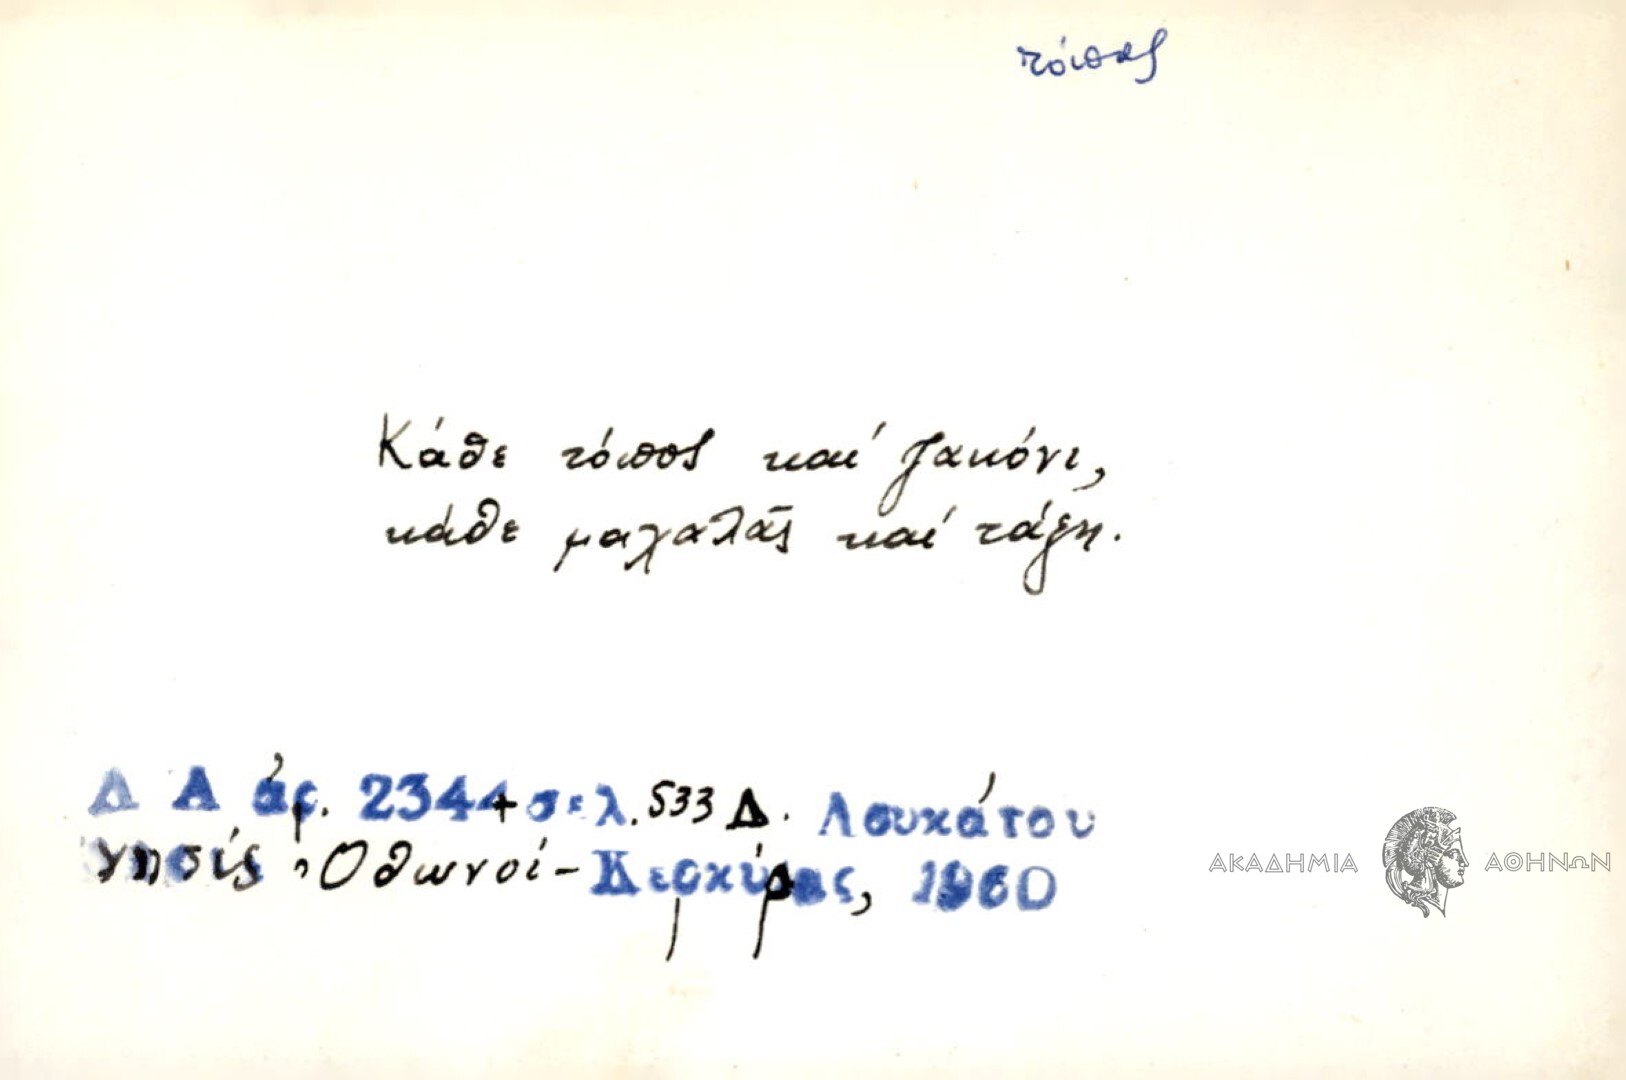 τόπος
Κάθε τόπος καί ζακόνι,
κάθε μαχαλᾶς καί τάξη.
Λ Α ἀρ. 2344 σελ. 533 Δ. Λουκάτου
νησίς Ὀθωνοί - Κερκύρας, 1960
ΑΚΑΔΗΜΙΑ ΑΘΗΝΩΝ